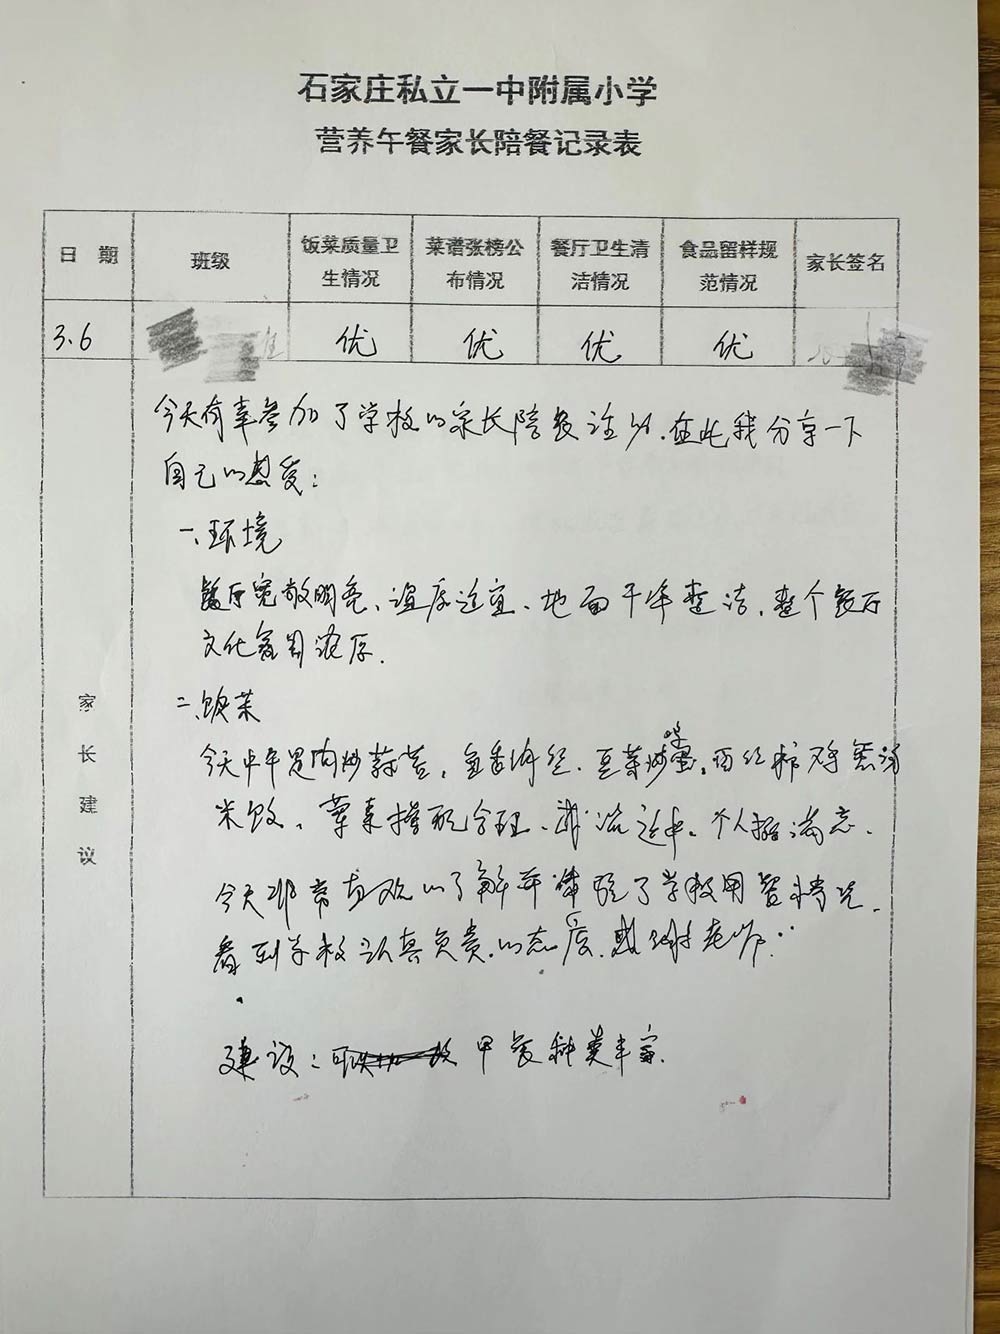 石家庄私立一中附属小学
营养午餐家长陪餐记录表
日 期 班级 饭菜质量卫生情况 菜谱张榜公布情况 餐厅卫生清洁情况 食品留样规范情况 家长签名
3.6 优 优 优 优
家长建议
今天有幸参加了学校的家长陪餐活动,在此我分享一下
自己的感受:
一、环境
餐厅宽敞明亮、温度适宜、地面干净整洁,整个餐厅
文化氛围浓厚.
二、饭菜
今天中午是肉炒蒜苔,鱼香肉丝,豆芽炒鸡蛋,西红柿鸡蛋汤
米饭,荤素搭配合理、咸淡适中,个人挺满意.
今天非常直观的了解并体验了学校用餐情况,
看到学校认真负责的态度,感谢老师.
建议: 早餐种类丰富.